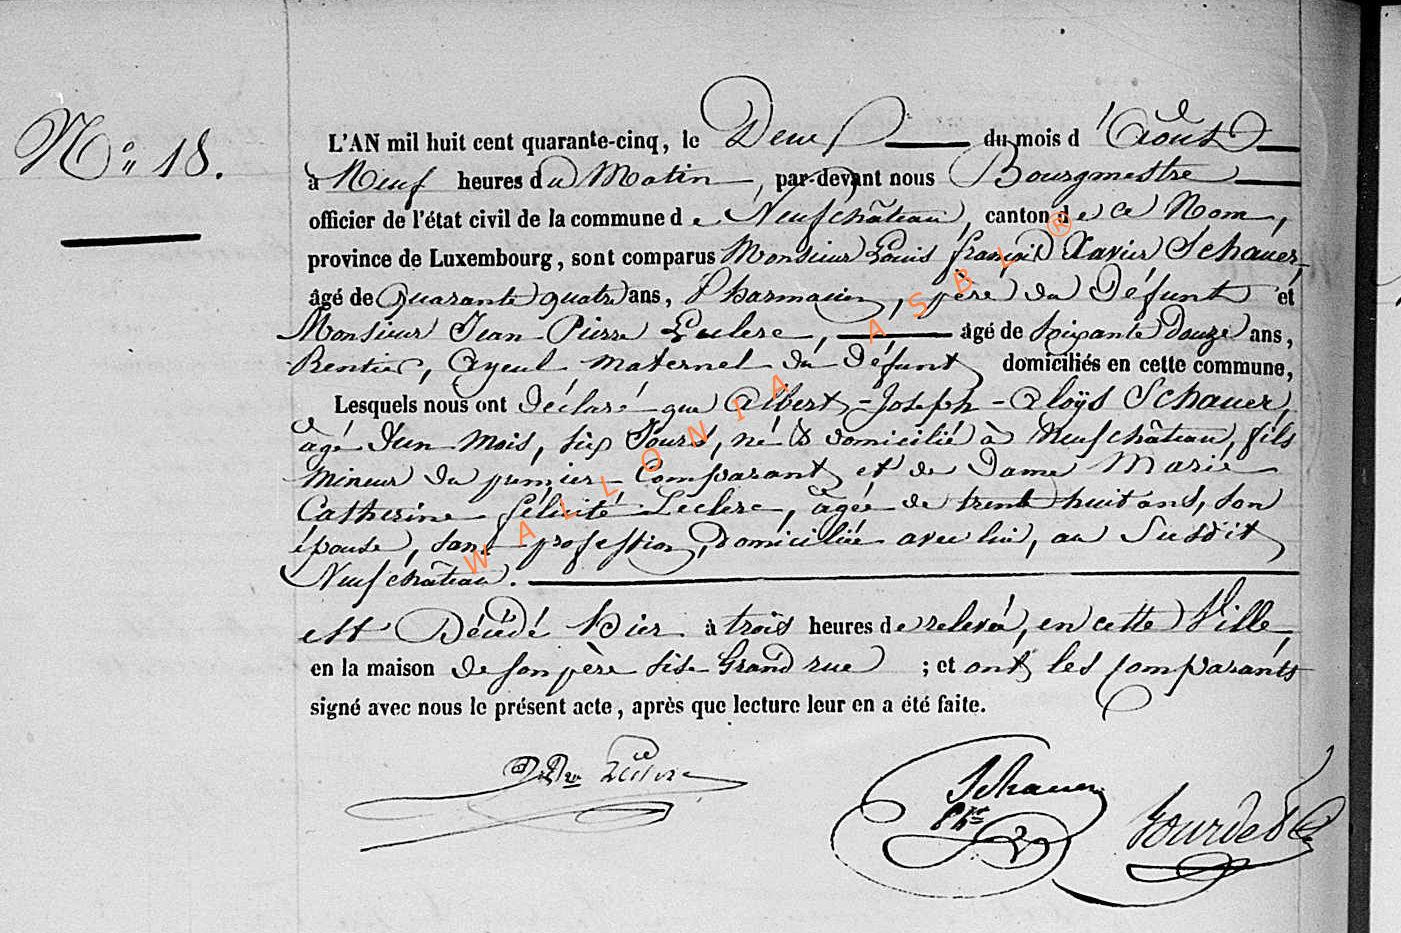 N° 18.
L'AN mil huit cent quarante-cinq, le Deux du mois d'Août
à Neuf heures du Matin, par-devant nous Bourgmestre
officier de l'état civil de la commune de Neufchâteau, canton de ce Nom,
province de Luxembourg, sont comparus Monsieur Louis françois Xavier Schauer,
âgé de Quarante quatre ans, Pharmacien, père du Défunt et
Monsieur Jean-Pierre Leclerc, âgé de soixante Douze ans,
Rentier, Ayeul maternel du Défunt domiciliés en cette commune,
Lesquels nous ont Déclaré que Albert-Joseph-Aloÿs Schauer,
âgé D'un mois, six Jours, né & domicilié à Neufchâteau, fils
Mineur du premier Comparant et de Dame Marie
Catherine félicité Leclerc, âgée de trente huit ans, son
épouse, sans profession, Domiciliée avec lui, au Susdit
Neufchâteau.
est Décédé hier à trois heures de relevée, en cette Ville,
en la maison de son père sise Grand rue ; et ont les comparants
signé avec nous le présent acte, après que lecture leur en a été faite.
Schauer
Phen
WALLONIA ASBL ®